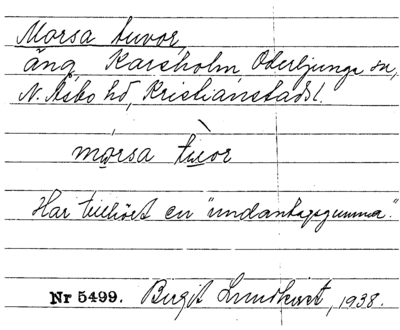 Morsa tuvor,
äng, Karsholm, Oderljunga sn,
N. Åsbo hd, Kristianstads l.
mórsa tùvor
Har tillhört en "undantagsgumma".
Nr 5499. Birgit Lundkvist, 1938.